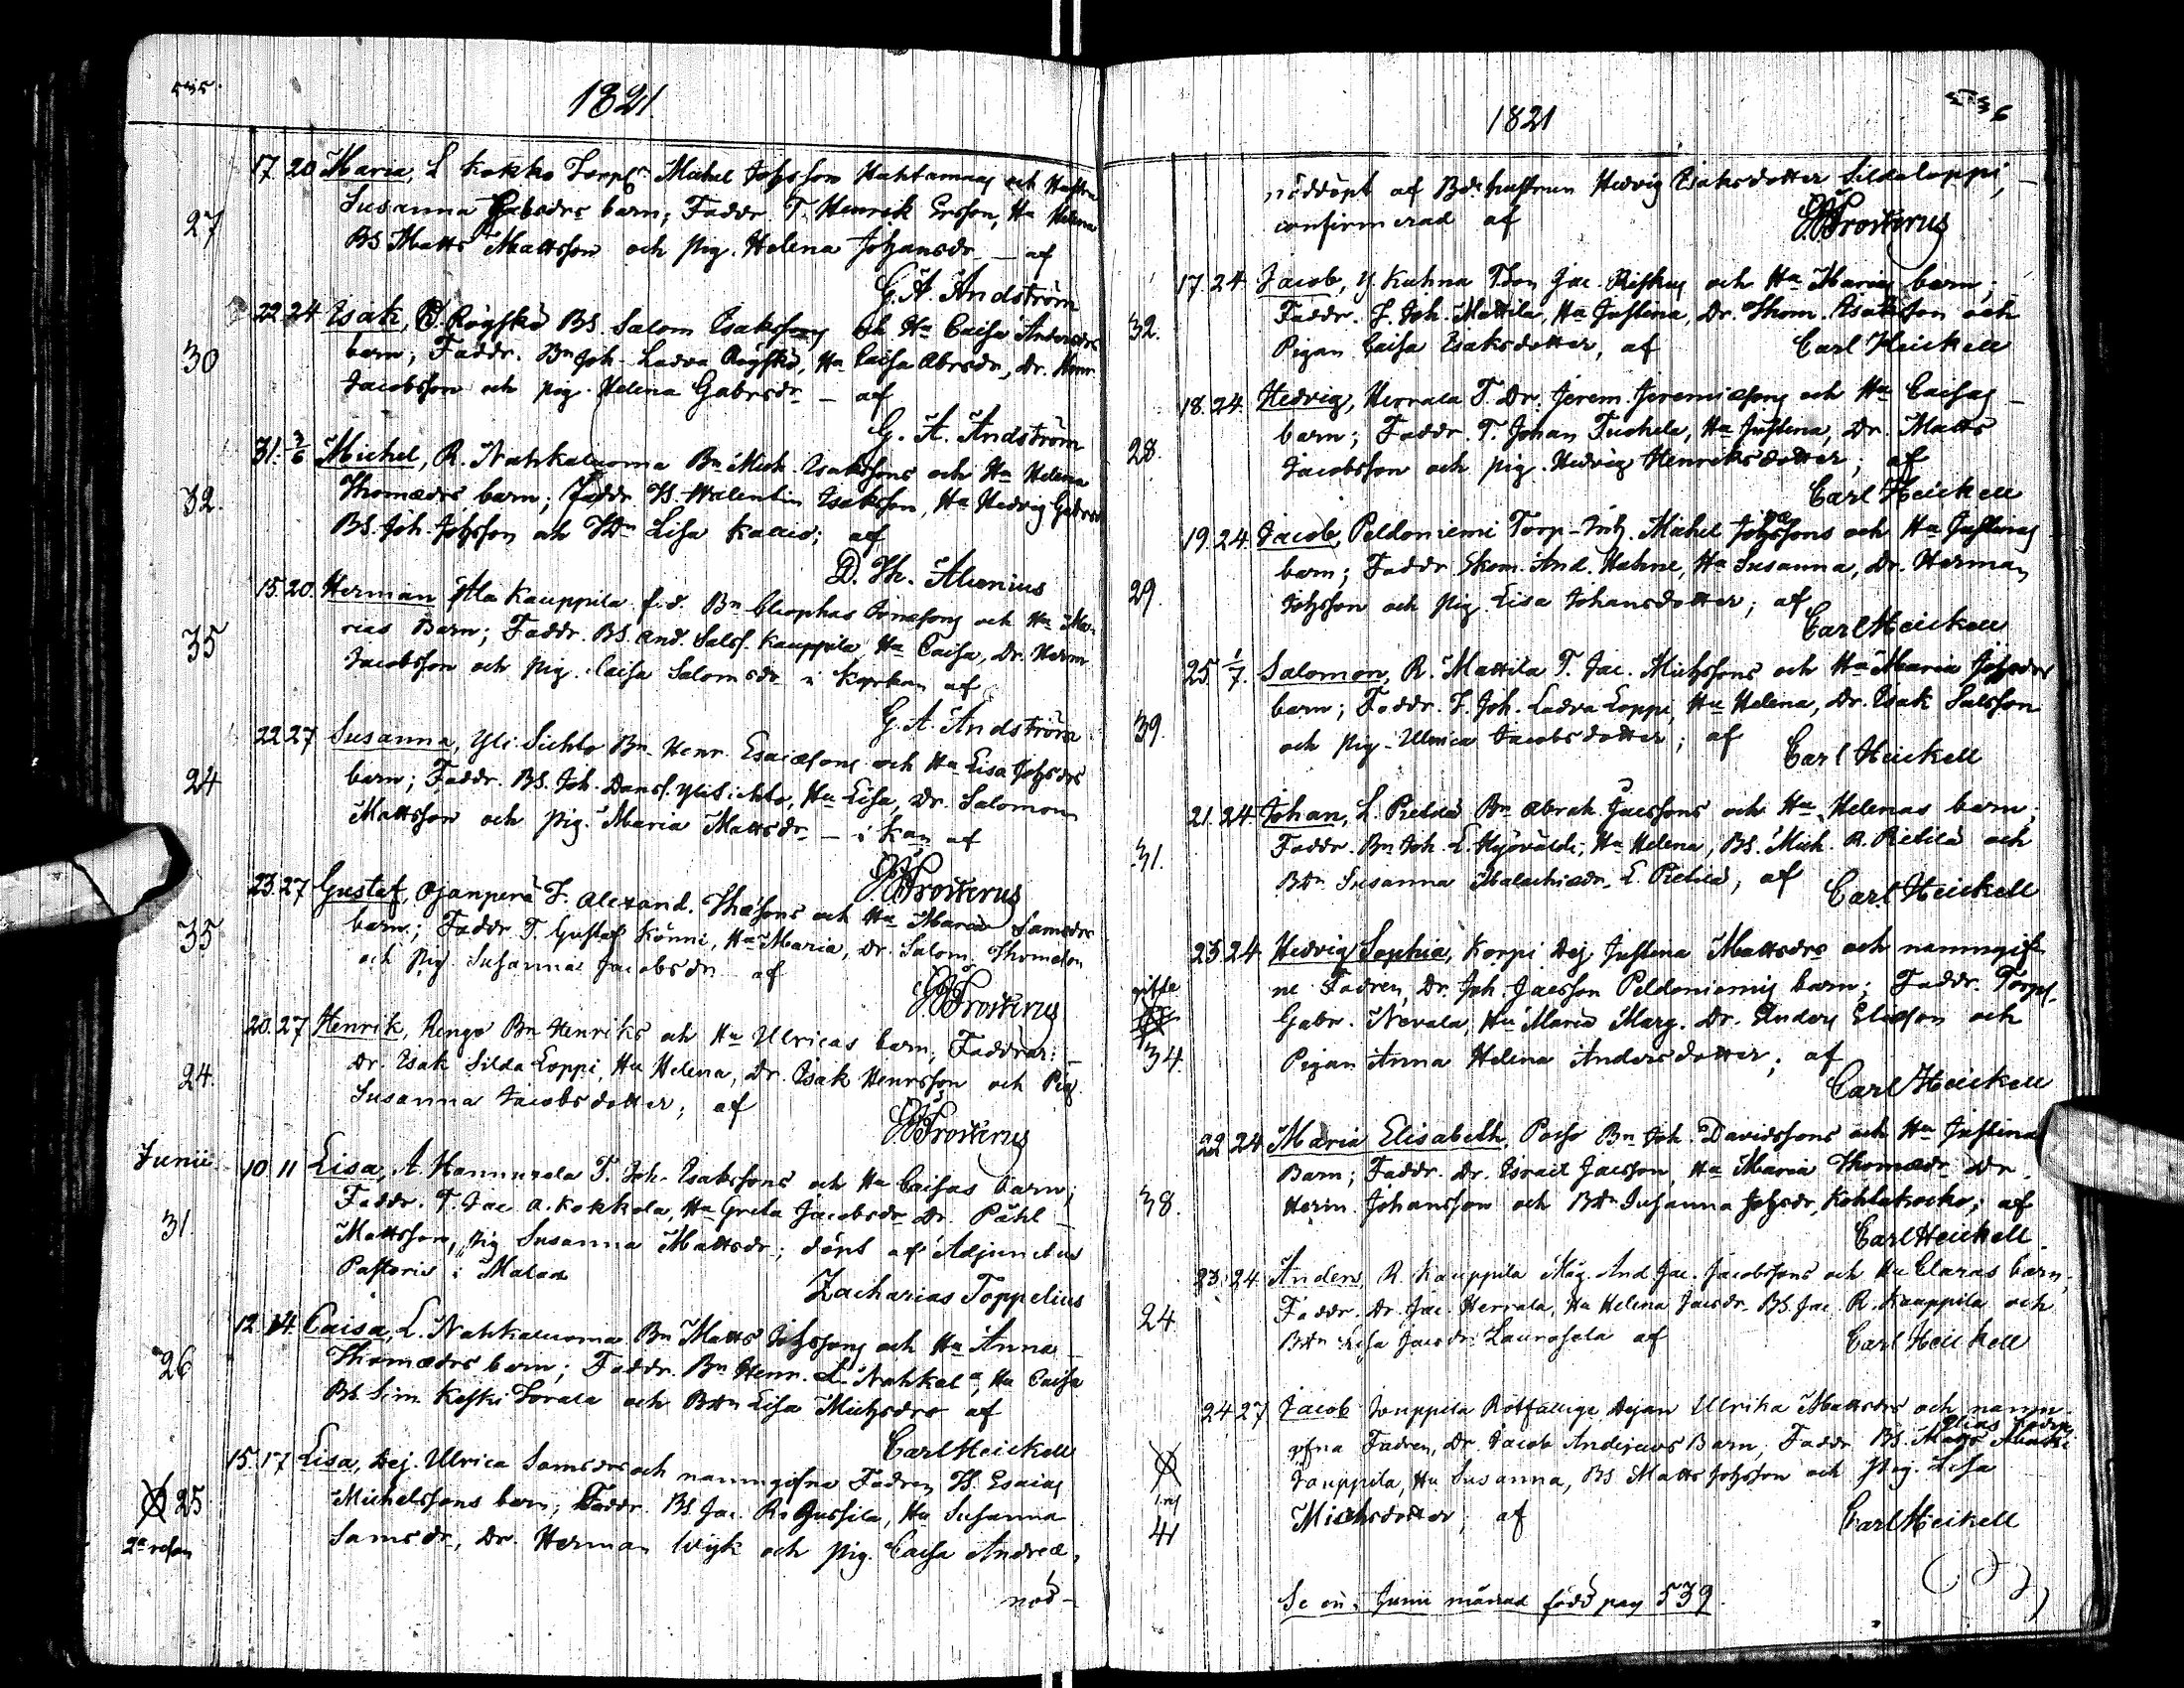 535.
1821.
17. 20 Maria, L Kokko Torps. Michel Johsson Hahtamaas och Hustru
27
Susanna Gabsdrs barn; Faddr. T. Henrik Ersson, Hu Helena
BS Matts Mattsson och pig. Helena Johansdr – af
G. A. Andström
22 24 Isak, Röyskö BS. Salom Isakssons och Hu Caisa Andersdrs
30
barn; Faddr. Bn Joh. Ladva Röyskö, Hu Caisa Abrsdr, Dr. Henr
Jacobsson och pig. Helena Gabrsdr – af
G. A. Andström
31. 3/6 Michel, R. Nahkaluoma Bn Mich. Isakssons och Hu Helena
32.
Thomædrs barn; Faddr. Walentin Isaksson, Hu Hedvig
BS. Joh. Johsson och Lisa Kaccio; af
D. Th. Alcenius
15. 20. Herman Ala Kauppila f.d. Bn Cleophas Jonæsons och Hu Ma-
35
rias Barn; Faddr. BS. And. Salss. Kauppila Hu Caisa, Dr. Herm.
Jacobsson och pig. Caisa Salomsdr i Kyrkan af
G. A. Andström
22 27 Susanna, Yli Sichto Bn Henr. Esaiæsons och Hu Lisa Johsdrs
24
barn; Faddr. BS. Joh. Danss. Ylisichto, Hu Lisa, Dr. Salomon
Mattsson och pig. Maria Mattsdr – i Kan af
Frosterus
23. 27 Gustaf, Ojanperä T. Alexand. Thæsons och Hu Maria Samsdrs
35
barn; Faddr. T. Gustaf Könni, Hu Maria, Dr. Salom. Thomason
och pig. Susanna Jacobsdr af
Frosterus
20. 27 Henrik, Rengo Bn Henriks och Hu Ulricas barn, Faddrar: –
24.
Dr. Isak Silda Loppi, Hu Helena, Dr. Isak Henrsson och Pig.
Susanna Jacobsdotter; af
Frosterus
Junii. 10 11 Lisa, A. Hannuxela T. Joh. Isakssons och Hu Caisas barn;
31.
Faddr. T. Jac A. Kokkola, Hu Greta Jacobsdr Dr. Påhl –
Mattsson, pig Susanna Mattsdr; döpt af Adjunctus
Pastoris i Malax
Zacharias Toppelius
12. 14. Caisa, L. Nahkaluoma Bn Matts Johssons och Hu Anna –
26
Thomædrs barn; Faddr. Bn Henr. L. Nahkala, Hu Caisa
BS. Sim. Keski Torala och Lisa Michsdrs af
Carl Heickell
15. 17 Lisa, Dej. Ulrica Samsdrs och namngifna Fadren Esaias
25
Michelssons barn; Faddr. BS. Jac. Jussila, Hu Susanna
2a resan
Samsdr, Dr. Herman Wyk och pig. Caisa Andreæ,
nöd-
1821
536
nöddöpt af Bdehustrun Hedvig Isaksdotter Sildaloppi, –
confirmerad af
Frosterus
17. 24. Jacob, Y. Kuhna Jac. och Hu Marias barn;
32.
Faddr. T. Joh. Mattila, Hu Justina, Dr. Thom. Isaksson och
Pigan Caisa Isaksdotter, af
Carl Heickell
18. 24. Hedvig, Herrala T. Dr. Jerem. Jeremiæsons och Hu Caisas –
28.
barn; Faddr. T. Johan Tuohela, Hu Justina, Dr. Matts
Jacobsson och pig. Hedvig Henriksdotter; af
Carl Heickell
19. 24. Jacob, Peldoniemi Torp-Inh. Michel Johssons och Hu Justinas
29.
barn; Faddr. Skom. And. Hahne, Hu Susanna, Dr. Herman
Johsson och pig. Lisa Johansdotter; af
Carl Heickell
25 1/7. Salomon, R. Mattila T. Jac. Michssons och Hu Maria Johsdrs
39.
barn; Faddr. T. Joh. Ladva Loppi, Hu Helena, Dr. Isak Salsson
och pig. Ulrica Jacobsdotter; af
Carl Heickell
21. 24. Johan, L. Pietilä Bn Abrah. Jacssons och Hu Helenas barn;
31.
Faddr. Bn Joh. L. Hyövälti, Hu Helena, BS. Mich. R. Pietilä och
Susanna Malachiædr. L. Pietilä, af
Carl Heickell
23. 24. Hedvig Sophia, Korpi Dej Justina Mattsdrs och namngif-
gifte
ne Fadren, Dr. Joh. Jacsson Peldoniemis barn; Faddr. Torps.
Gabr. Nevala, Hu Maria Marg. Dr. Anders Eliæson och
34.
Pigan Anna Helena Andersdotter; af
Carl Heickell
22 24 Maria Elisabeth, Poiso Bn Joh. Davidssons och Hu Justinas
38.
Barn; Faddr. Dr. Israel Jacsson, Hu Maria Thomædr Dr.
Herm. Johansson och Susanna Johsdr, Kohlakocko; af
Carl Heickell.
23. 24. Anders, R. Kauppila Måg. And. Jac. Jacobssons och Hu Claras barn;
24.
Faddr. Dr. Jac. Herrala, Hu Helena Jacsdr. BS. Jac. R. Kauppila och
Lisa Jacsdr. Laurosela af
Carl Heickell
24 27. Jacob Jouppila Rotfattige dejan Ulrika Mattsdrs och namn-
gifna Fadren, Dr. Jacob Andersons Barn, Faddr. BS. Matts
Jouppila, Hu Susanna, BS Matts Johsson och pig. Lisa
41
Michsdotter; af
Carl Heickell
Se en i Junii månad född pag 539.